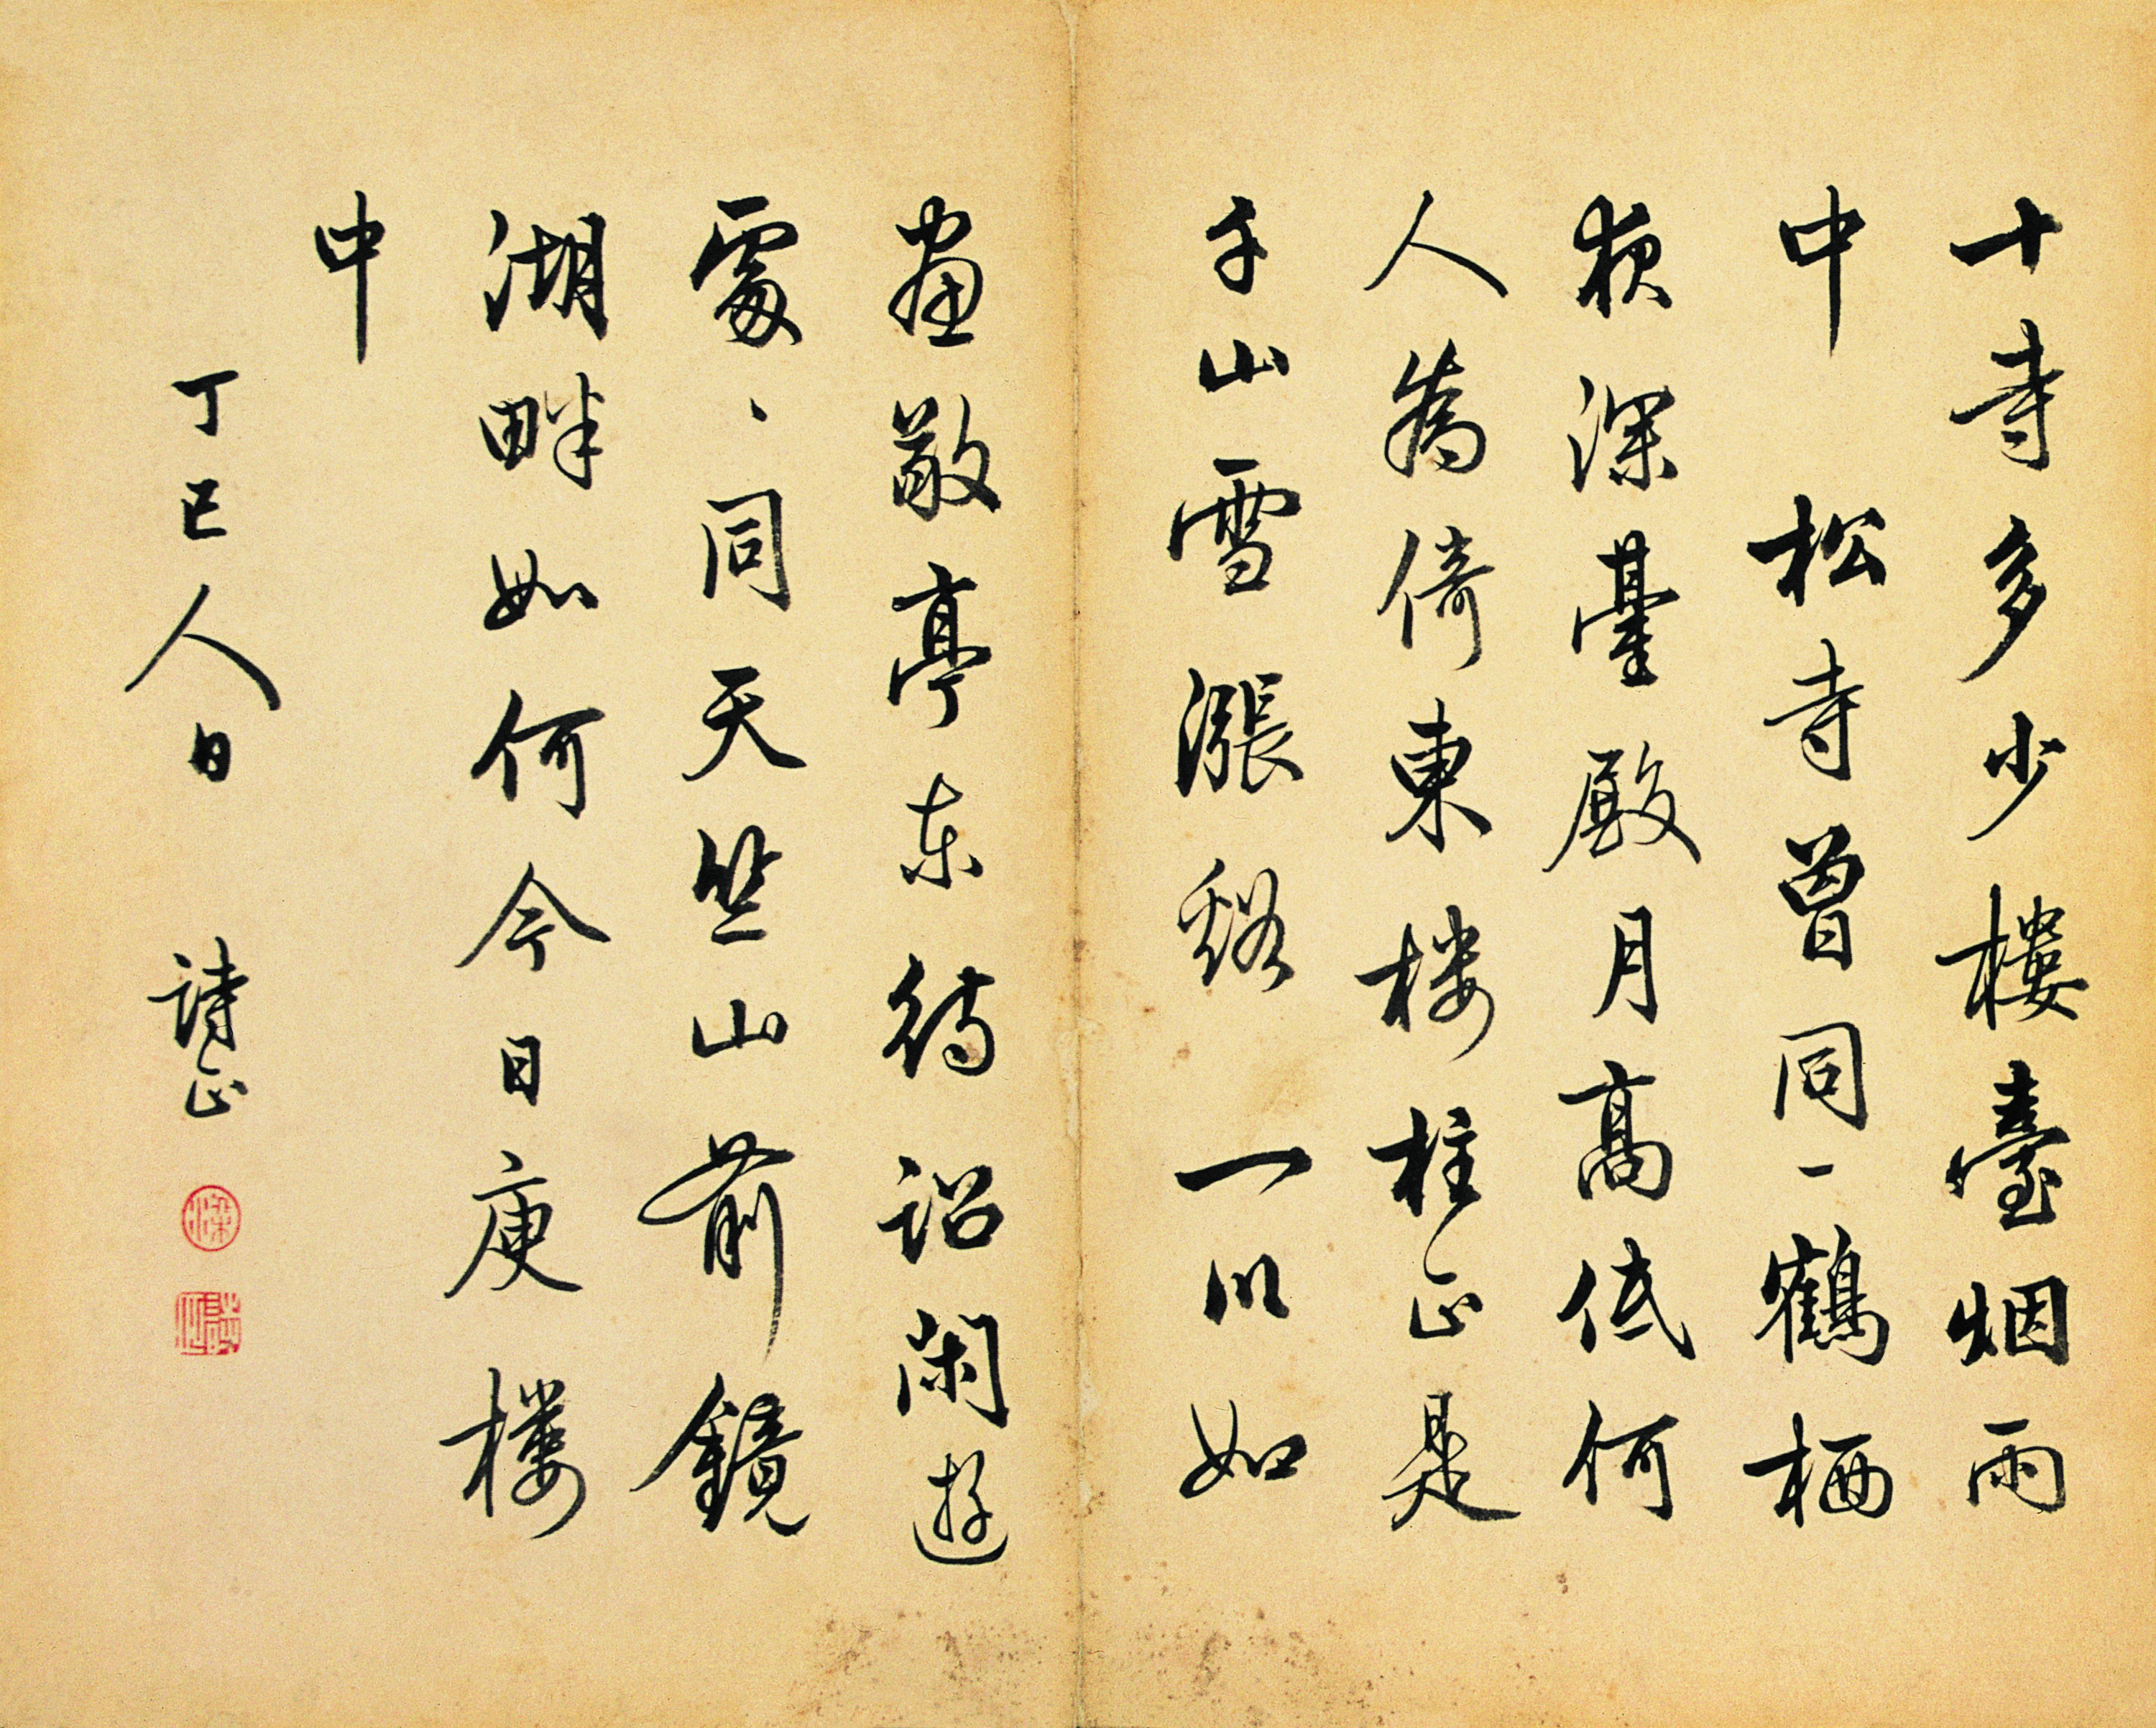 十寺多少樓臺烟雨
中 松寺曾同一鶴栖
夜深臺殿月高低何
人為倚東楼柱正是
千山雪漲谿 一以如
畫敞亭东待詔閑遊
處、同天竺山前鏡
湖畔如何今日庾樓
中
丁巳人日 詩正
梁